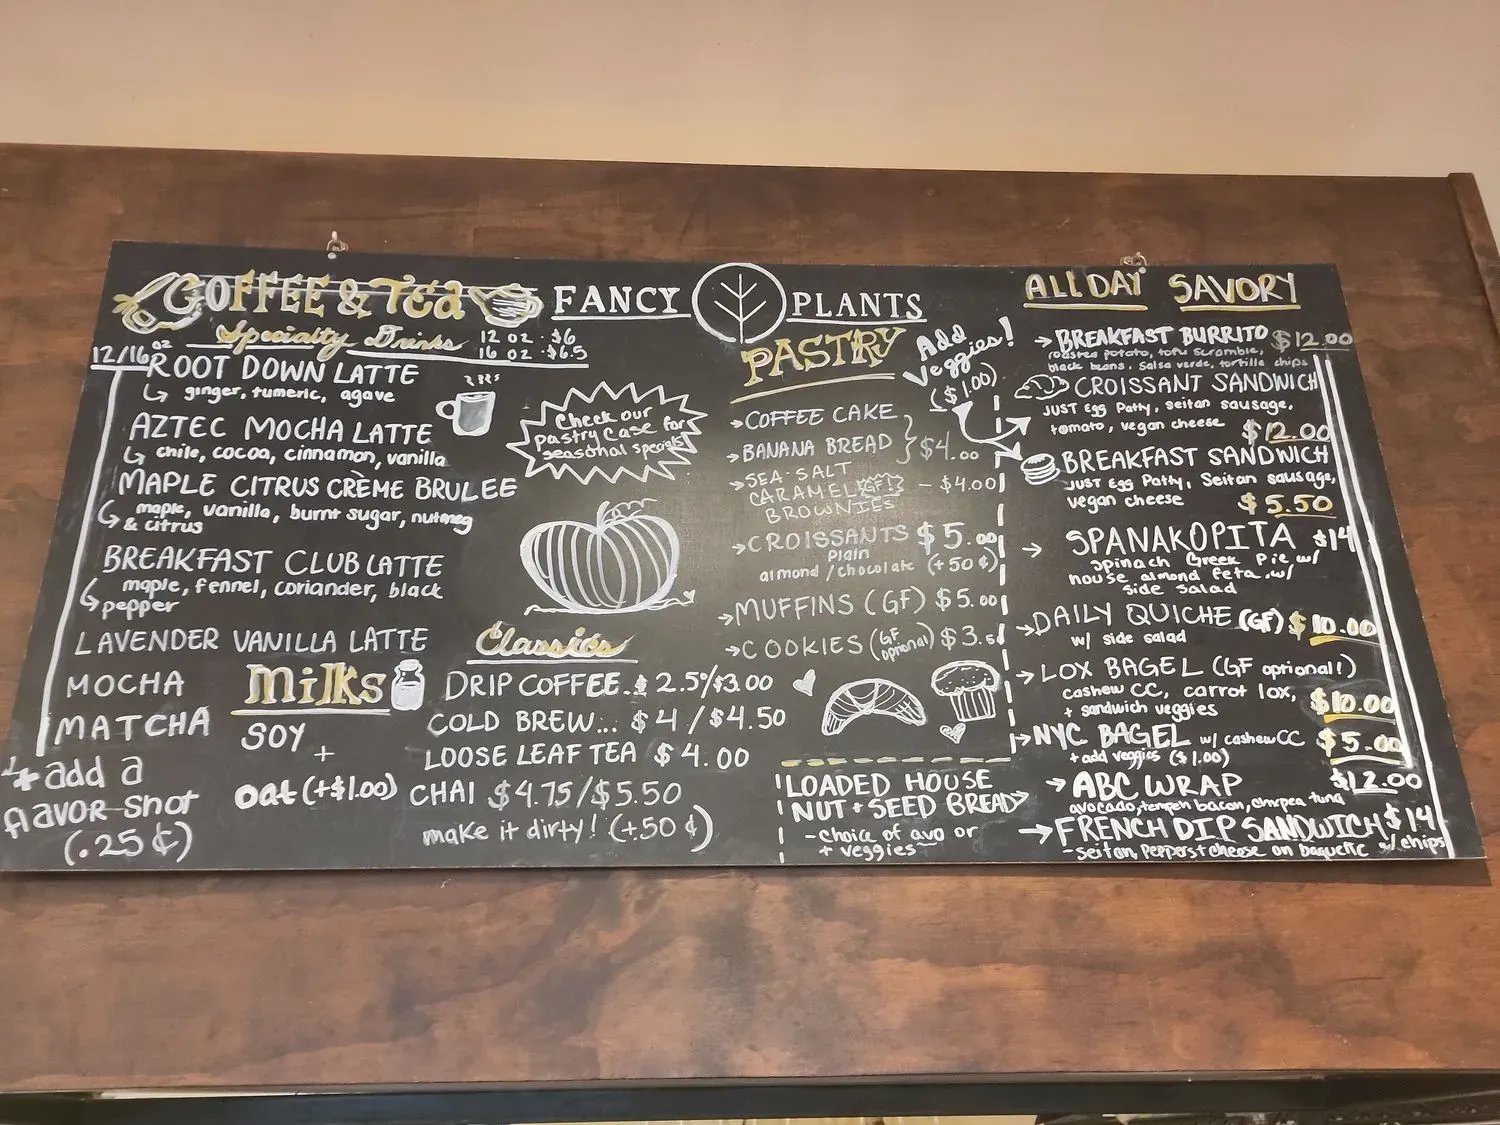 COFFEE & Tea
Specialty Drinks
12 oz · $6
16 oz · $6.5
12/16 oz
ROOT DOWN LATTE
ginger, tumeric, agave
AZTEC MOCHA LATTE
chile, cocoa, cinnamon, vanilla
MAPLE CITRUS CRÈME BRULEE
maple, vanilla, burnt sugar, nutmeg
& citrus
BREAKFAST CLUB LATTE
maple, fennel, coriander, black
pepper
LAVENDER VANILLA LATTE
MOCHA
MATCHA
* add a
flavor shot
(.25¢)
Milks
SOY
+
oat (+$1.00)
FANCY PLANTS
Check our
pastry case for
seasonal specials
Classics
DRIP COFFEE.. $2.5/$3.00
COLD BREW... $4/$4.50
LOOSE LEAF TEA $4.00
CHAI $4.75/$5.50
make it dirty! (+.50¢)
PASTRY
COFFEE CAKE
BANANA BREAD } $4.00
SEA SALT
CARAMEL GF! - $4.00
BROWNIES
CROISSANTS $5.00
Plain
almond/chocolate (+50¢)
MUFFINS (GF) $5.00
COOKIES (GF optional) $3.50
LOADED HOUSE
NUT + SEED BREAD
- choice of avo or
+ veggies
Add
Veggies!
($1.00)
ALL DAY SAVORY
BREAKFAST BURRITO $12.00
roasted potato, tofu scramble,
black beans, salsa verde, tortilla chips
CROISSANT SANDWICH
JUST Egg Patty, seitan sausage,
tomato, vegan cheese $12.00
BREAKFAST SANDWICH
JUST Egg Patty, Seitan sausage,
vegan cheese $5.50
SPANAKOPITA $14
spinach Greek Pie w/
house almond feta w/
side salad
DAILY QUICHE (GF) $10.00
w/ side salad
LOX BAGEL (GF optional!)
cashew CC, carrot lox,
+ sandwich veggies $10.00
NYC BAGEL w/ cashew CC $5.00
+ add veggies ($1.00)
ABC WRAP $12.00
avocado, tempeh bacon, chkpea tuna
FRENCH DIP SANDWICH $14
- seitan, peppers + cheese on baguette w/ chips